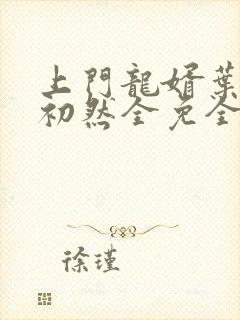 上門龍婿葉
初然全免全
徐瑾